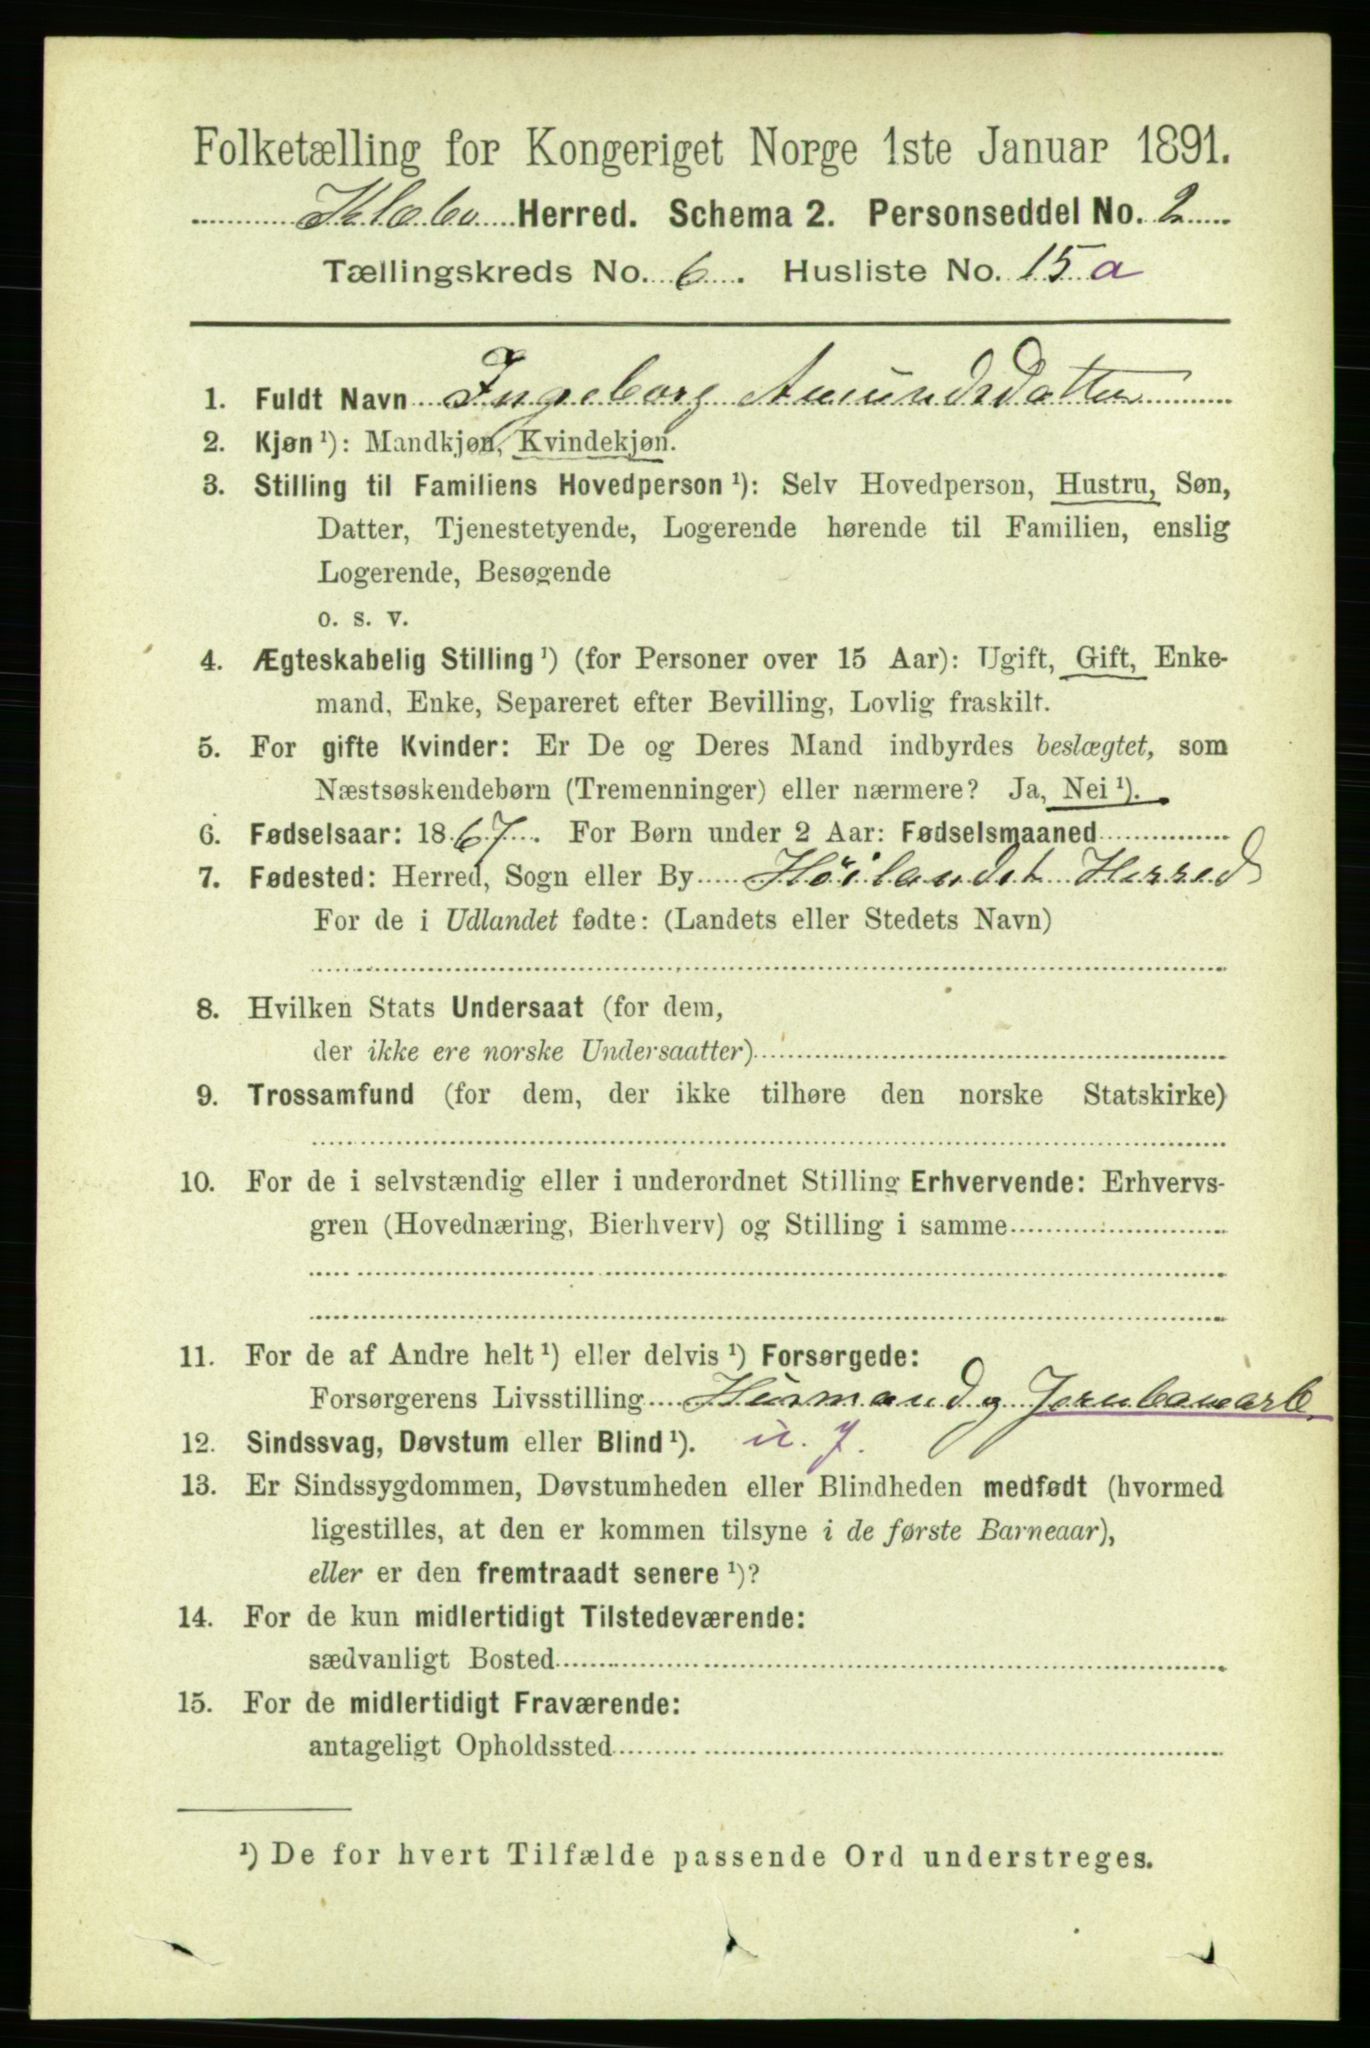 Folketælling for Kongeriget Norge 1ste Januar 1891.
Klæbu Herred. Schema 2. Personseddel No. 2
Tællingskreds No. 6. Husliste No. 15 a
1. Fuldt Navn Ingeborg Amundsdatter
2. Kjøn ¹): Mandkjøn, Kvindekjøn.
3. Stilling til Familiens Hovedperson ¹): Selv Hovedperson, Hustru, Søn,
Datter, Tjenestetyende, Logerende hørende til Familien, enslig
Logerende, Besøgende
o. s. v.
4. Ægteskabelig Stilling ¹) (for Personer over 15 Aar): Ugift, Gift, Enke-
mand, Enke, Separeret efter Bevilling, Lovlig fraskilt.
5. For gifte Kvinder: Er De og Deres Mand indbyrdes beslægtet, som
Næstsøskendebørn (Tremenninger) eller nærmere? Ja, Nei ¹).
6. Fødselsaar: 1867. For Børn under 2 Aar: Fødselsmaaned
7. Fødested: Herred, Sogn eller By Höilandet Herred
For de i Udlandet fødte: (Landets eller Stedets Navn)
8. Hvilken Stats Undersaat (for dem,
der ikke ere norske Undersaatter)
9. Trossamfund (for dem, der ikke tilhøre den norske Statskirke)
10. For de i selvstændig eller i underordnet Stilling Erhvervende: Erhvervs-
gren (Hovednæring, Bierhverv) og Stilling i samme
11. For de af Andre helt ¹) eller delvis ¹) Forsørgede:
Forsørgerens Livsstilling Husmand og Jernbanearb.
12. Sindssvag, Døvstum eller Blind ¹). u. J.
13. Er Sindssygdommen, Døvstumheden eller Blindheden medfødt (hvormed
ligestilles, at den er kommen tilsyne i de første Barneaar),
eller er den fremtraadt senere ¹)?
14. For de kun midlertidigt Tilstedeværende:
sædvanligt Bosted
15. For de midlertidigt Fraværende:
antageligt Opholdssted
¹) De for hvert Tilfælde passende Ord understreges.